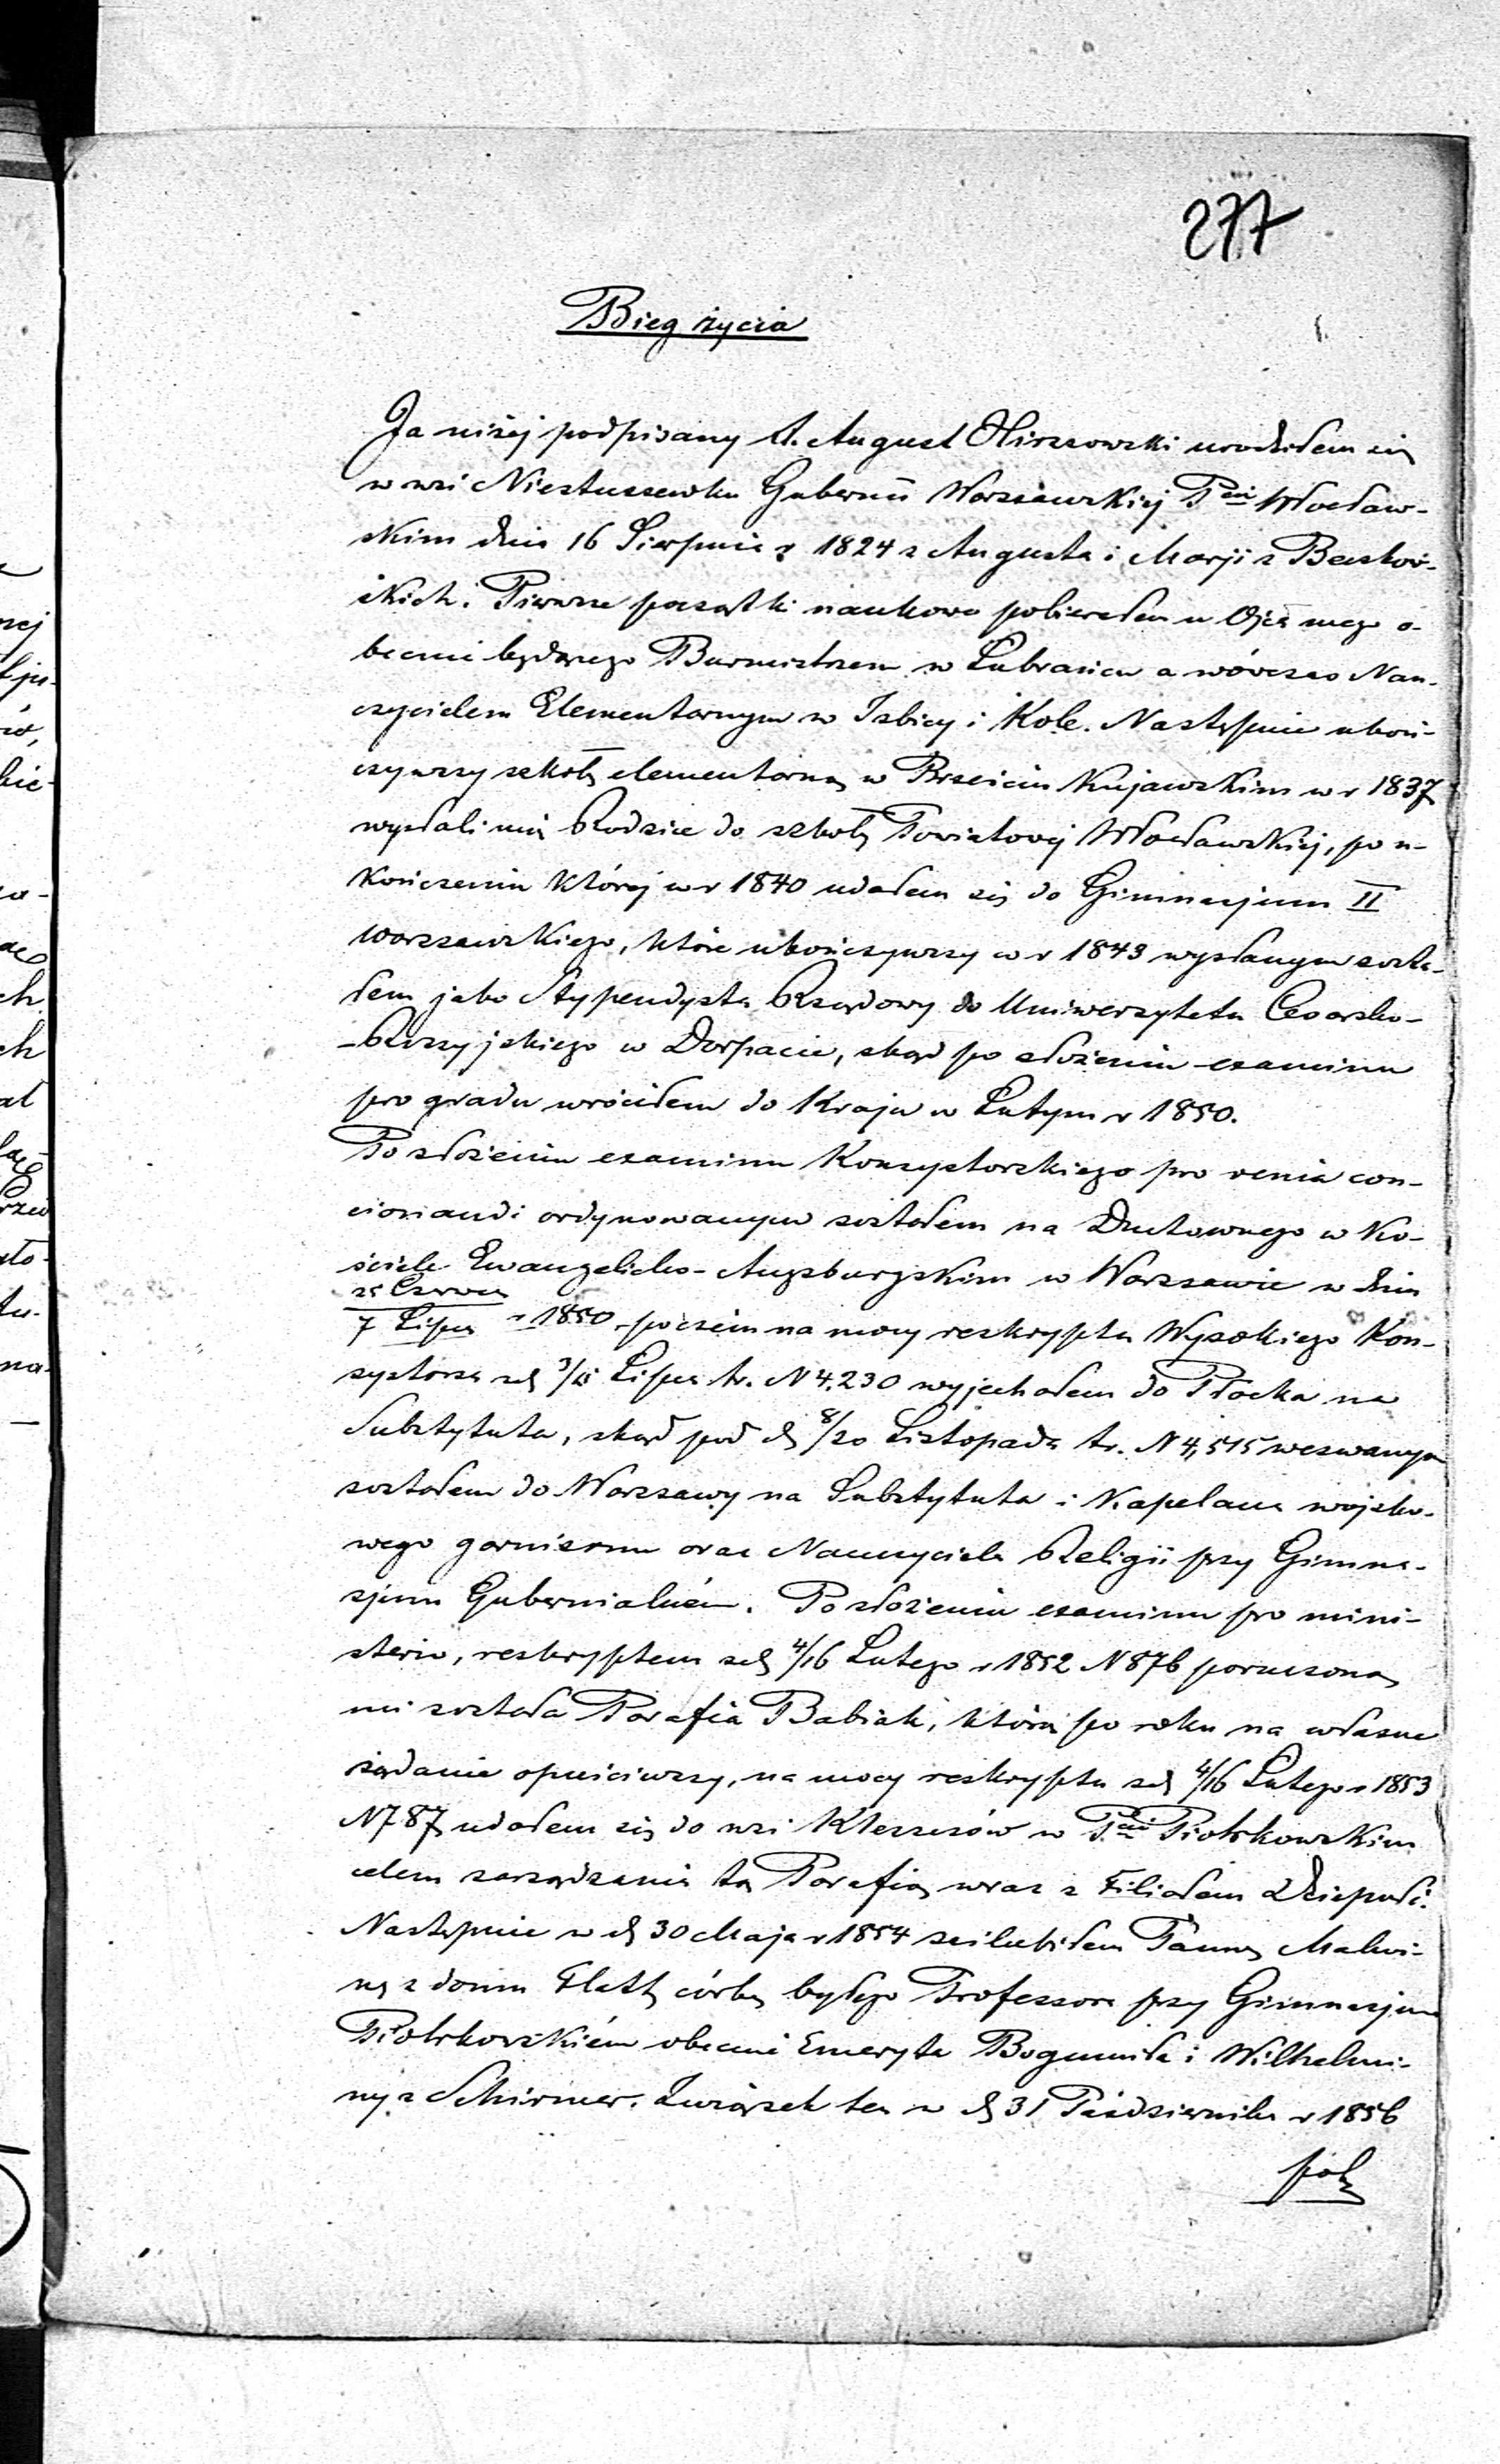 277
Bieg życia
Ja niżej podpisany A. August Hirszowski urodziłem się
w wsi Niestuszewku Gubernii Warszawskiej P<sup>cie</sup> Włocław-
skim dnia 16 Sierpnia r 1824 z Augusta i Marji z
skich. Pierwsze początki naukowe pobierałem u Ojca mego o-
becnie będącego Burmistrzem w Lubrańcu a wówczas Nau-
czycielem Elementarnym w Izbicy i Kole. Następnie ukoń-
czywszy szkołę elementarną w Brześciu Kujawskim w r 1837
wysłali mię Rodzice do szkoły Powiatowej Włocławskiej, po u-
kończeniu której w r 1840 udałem się do Gimnazjum II
warszawskiego, które ukończywszy w r 1843 wysłanym zosta-
łem jako Stypendysta Rządowy do Uniwersytetu Cesarsko-
-Rossyjskiego w Dorpacie, skąd po złożeniu examinu
pro gradu wróciłem do Kraju w Lutym r 1850.
Po złożeniu examinu Konsystorskiego pro venia con-
cionandi ordynowanym zostałem na Duchownego w Ko-
ściele Ewangelicko-Augsburgskim w Warszawie w dniu
25 Czerwca
7 Lipca r 1850, poczem na mocy reskryptu Wysokiego Kon-
systorza z d 3/15 Lipca tr. N 4,230 wyjechałem do Płocka na
Substytuta, skąd pod d 8/20 Listopada tr. N 4,515 wezwanym
zostałem do Warszawy na Substytuta i Kapelana wojsko-
wego garnizonu oraz Nauczyciela Religii przy Gimna-
zjum Gubernialném. Po złożeniu examinu pro mini-
sterio, reskryptem z d 4/16 Lutego r 1852 N 876 poruczoną
mi została Parafia Babiak, którą po roku na własne
żądanie opuściwszy, na mocy reskryptu z d 4/16 Lutego r 1853
N 787 udałem się do wsi Kleszczów w P<sup>cie</sup> Piotrkowskim
celem zarządzania tą Parafią wraz z Filiałem Dziepułć.
Następnie w d 30 Maja r 1854 zaślubiłem Pannę Malwi-
nę z domu Flatt, córkę byłego Professora przy Gimnazjum
Piotrkowskiém obecnie Emeryta Bogumiła i Wilhelmi-
ny z Schirmer. Związek ten w d 31 Października r 1856